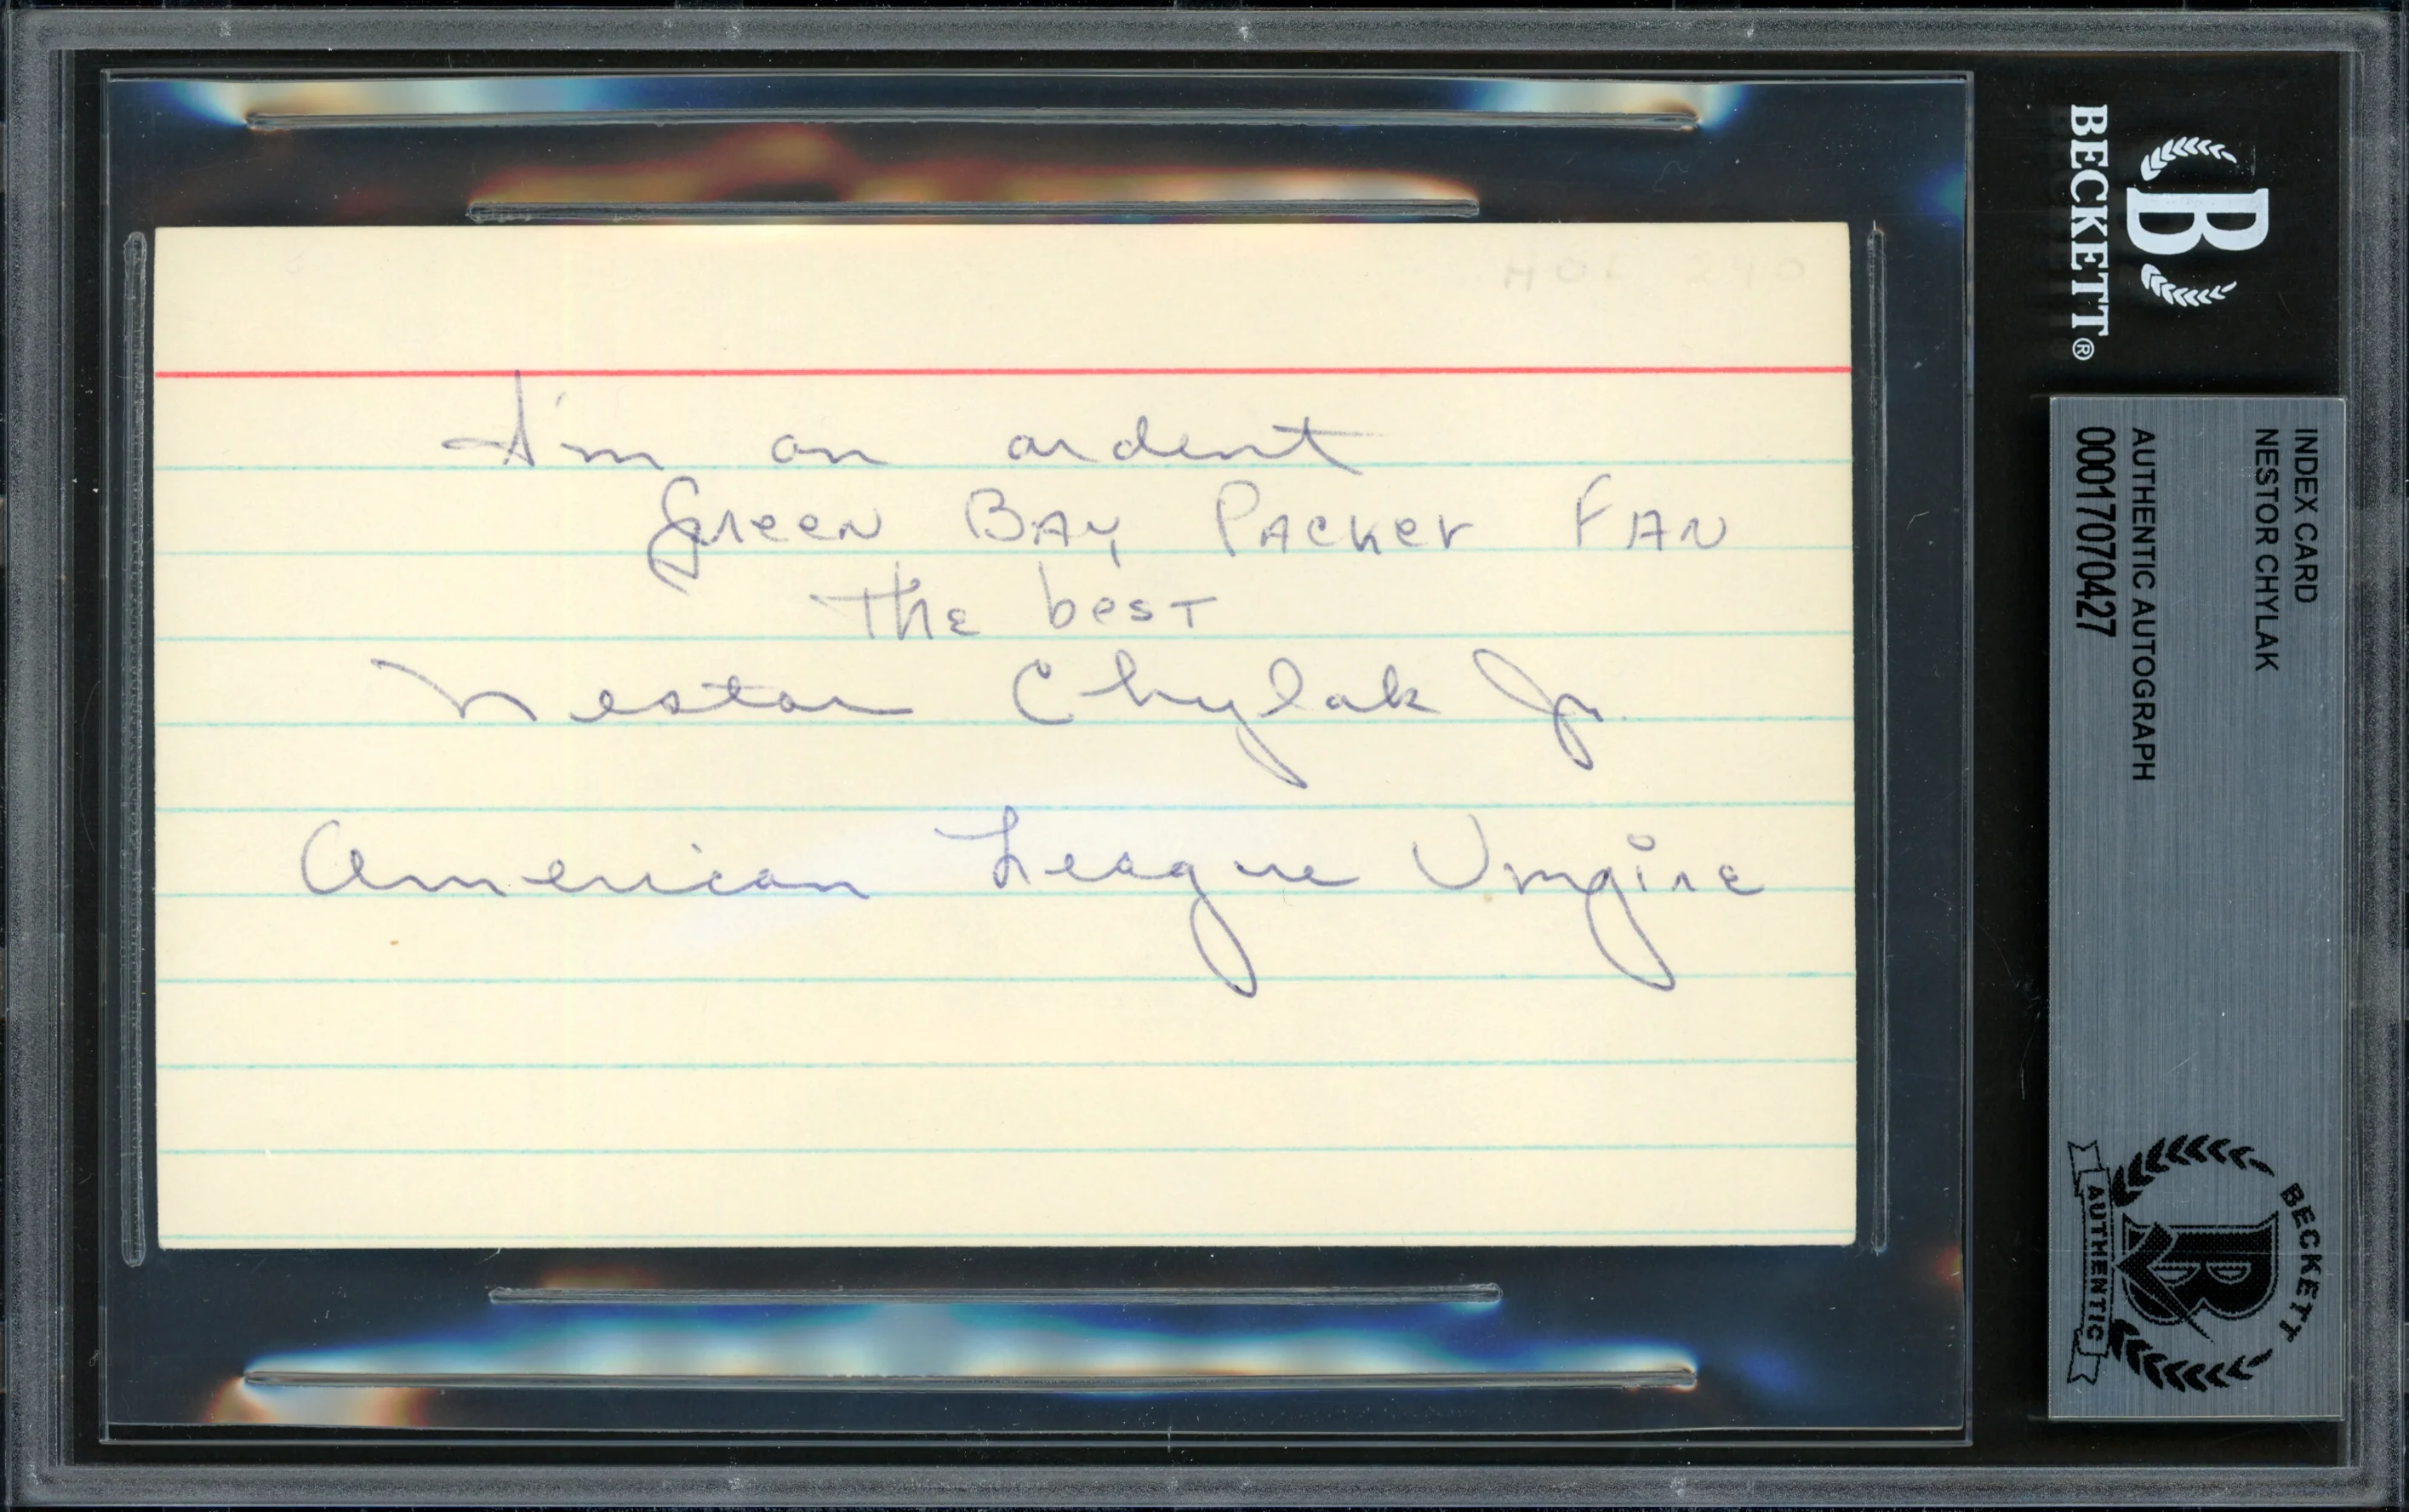 HOF 240
I'm an ardent
Green Bay Packer Fan
The best
Nestor Chylak Jr.
American League Umpire
B
BECKETT®
INDEX CARD
NESTOR CHYLAK
AUTHENTIC AUTOGRAPH
00017070427
BECKETT
B
AUTHENTIC